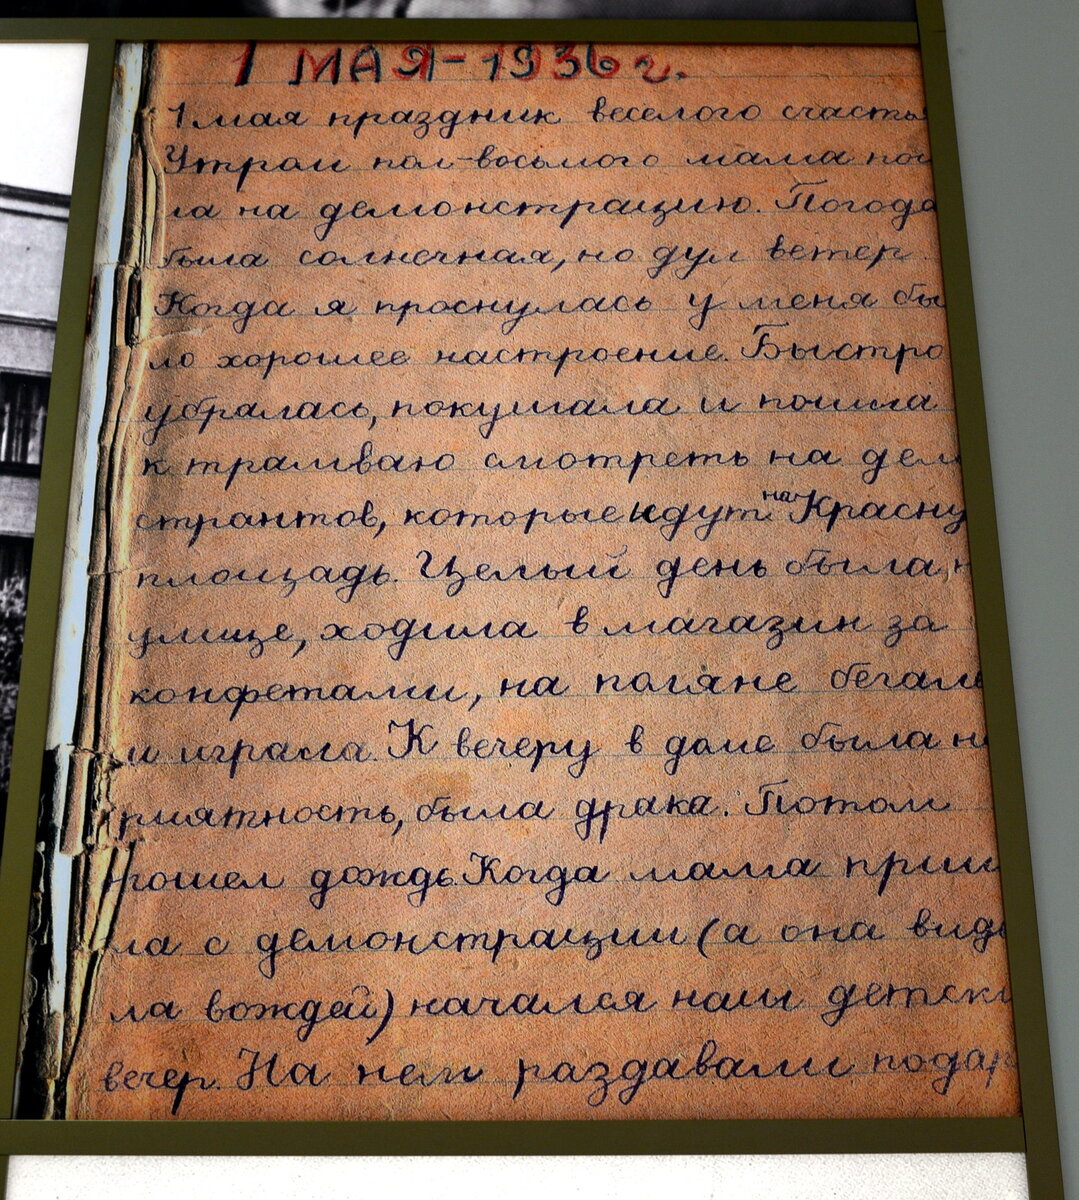 1 МАЯ-1936 г.
1 мая праздник веселого счасть
Утром пол-восьмого мама пош
ла на демонстрацию. Погода
была солнечная, но дул ветер.
Когда я проснулась у меня бы
ло хорошее настроение. Быстро
убралась, покушала и пошла
к трамваю смотреть на дем
странтов, которые идут на Красну
площадь. Целый день была н
улице, ходила в магазин за
конфетами, на поляне бегала
и играла. К вечеру в доме была н
приятность, была драка. Потом
прошел дождь. Когда мама приш
ла с демонстрации (а она виде
ла вождей) начался наш детски
вечер. На нем раздавали подар